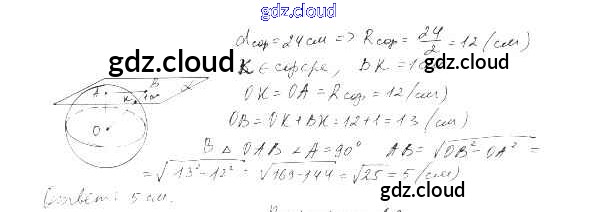 gdz.cloud
dсф = 24 см => Rсф = 24/2 = 12 (см)
gdz.cloud
K ∈ сфере, BK = 1
gdz.cloud
A B K α
OK = OA = Rсф = 12 (см)
OB = OK + BK = 12 + 1 = 13 (см)
O
В △ OAB ∠A = 90° AB = √OB² - OA² =
= √13² - 12² = √169 - 144 = √25 = 5 (см)
gdz.cloud
Ответ: 5 см.
gdz.cloud